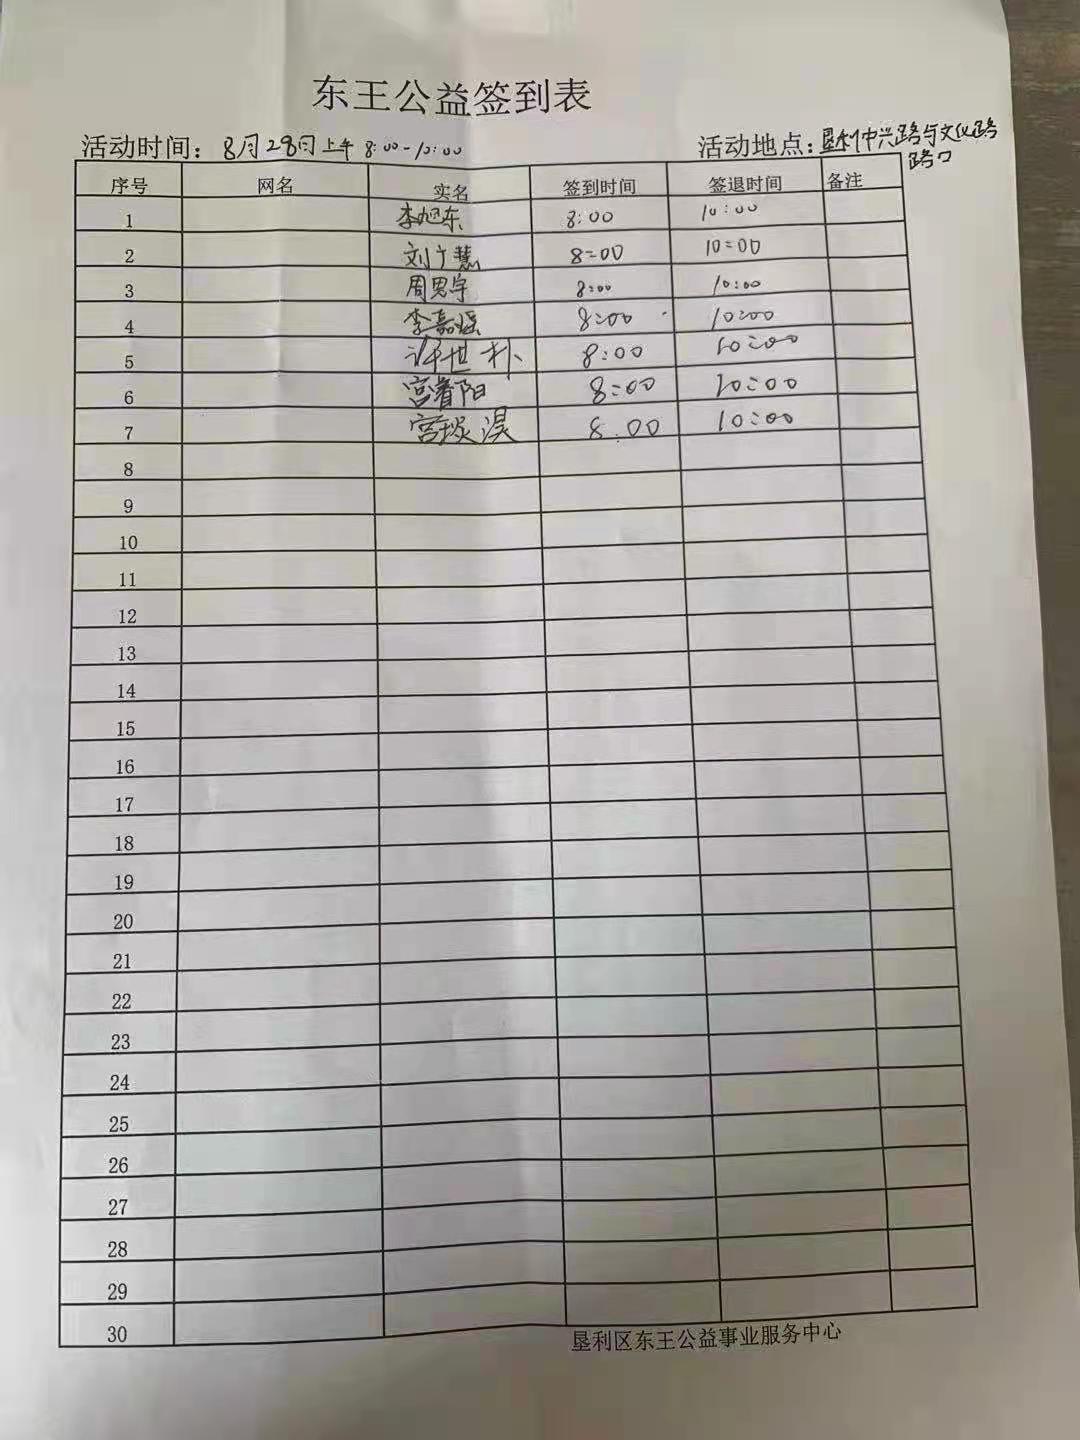 东王公益签到表
活动时间：8月28日上午 8:00-10:00 活动地点：垦利中兴路与文化路
路口
序号 网名 实名 签到时间 签退时间 备注
1 李旭东 8:00 10:00
2 刘广慧 8:00 10:00
3 周思宇 8:00 10:00
4 李嘉瑶 8:00 10:00
5 许世朴 8:00 10:00
6 宫睿阳 8:00 10:00
7 宫 8:00 10:00
8
9
10
11
12
13
14
15
16
17
18
19
20
21
22
23
24
25
26
27
28
29
30
垦利区东王公益事业服务中心